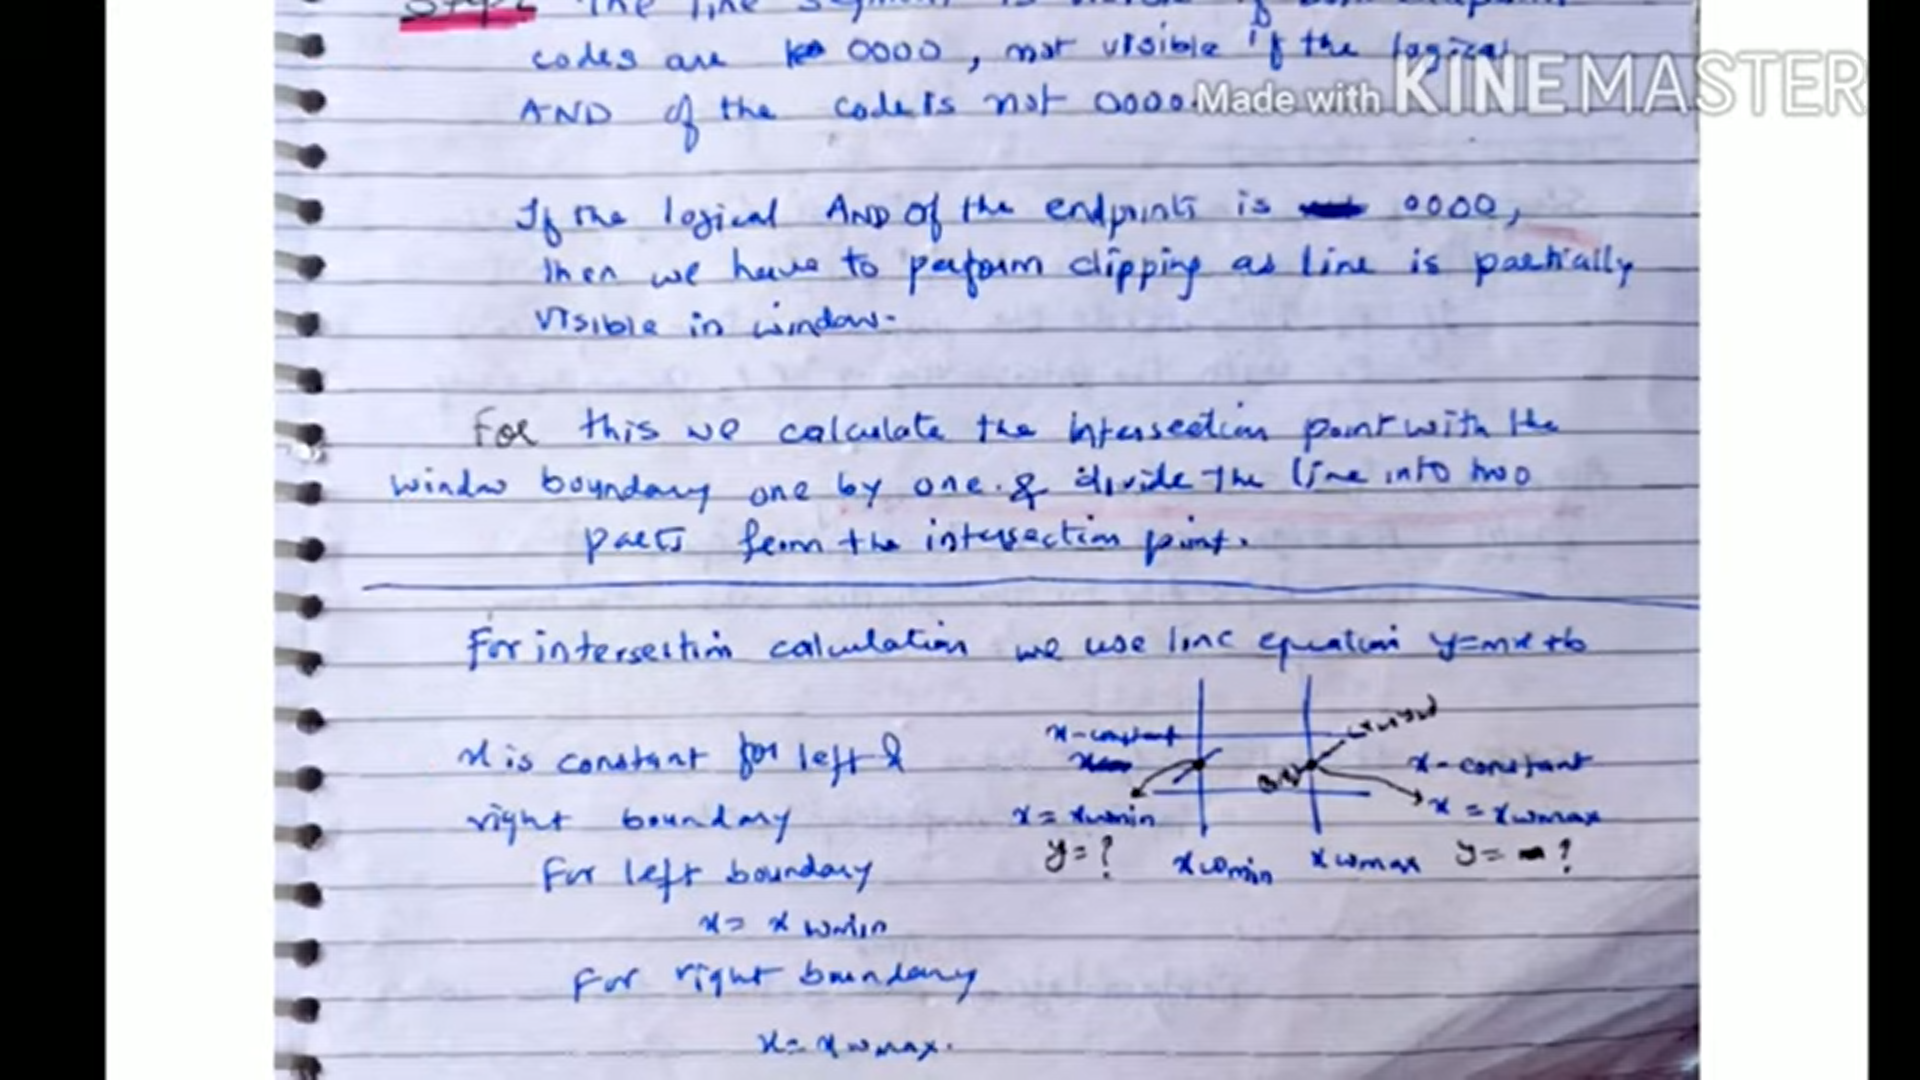 Step2 The line segment is visible if both endpoint
codes are 0000, not visible if the logical
AND of the code is not 0000.
Made with KINEMASTER
If the logical AND of the endpoints is 0000,
then we have to perform clipping as line is partially
visible in window.
For this we calculate the intersection point with the
window boundary one by one. & divide the line into two
parts from the intersection point.
For intersection calculation we use line equation y=mx+b
x is constant for left &
right boundary
For left boundary
x = xwmin
For right boundary
x = xwmax.
x-constant
x = xwmin
y = ?
xwmin
xwmax
x-constant
x = xwmax
y = ?